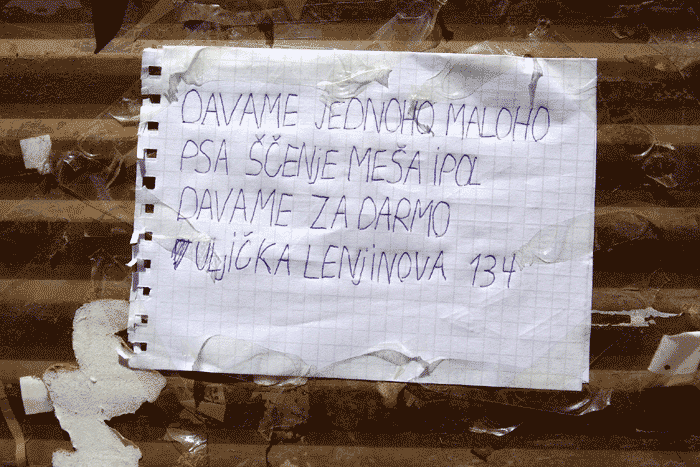 DAVAME JEDNOHO MALOHO
PSA ŠČENjE MEŠA iPOL
DAVAME ZA DARMO
ULjiČKA LENjiNOVA 134